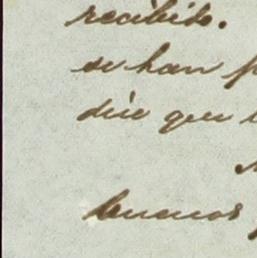 recibido.
se han
dice que
buenos